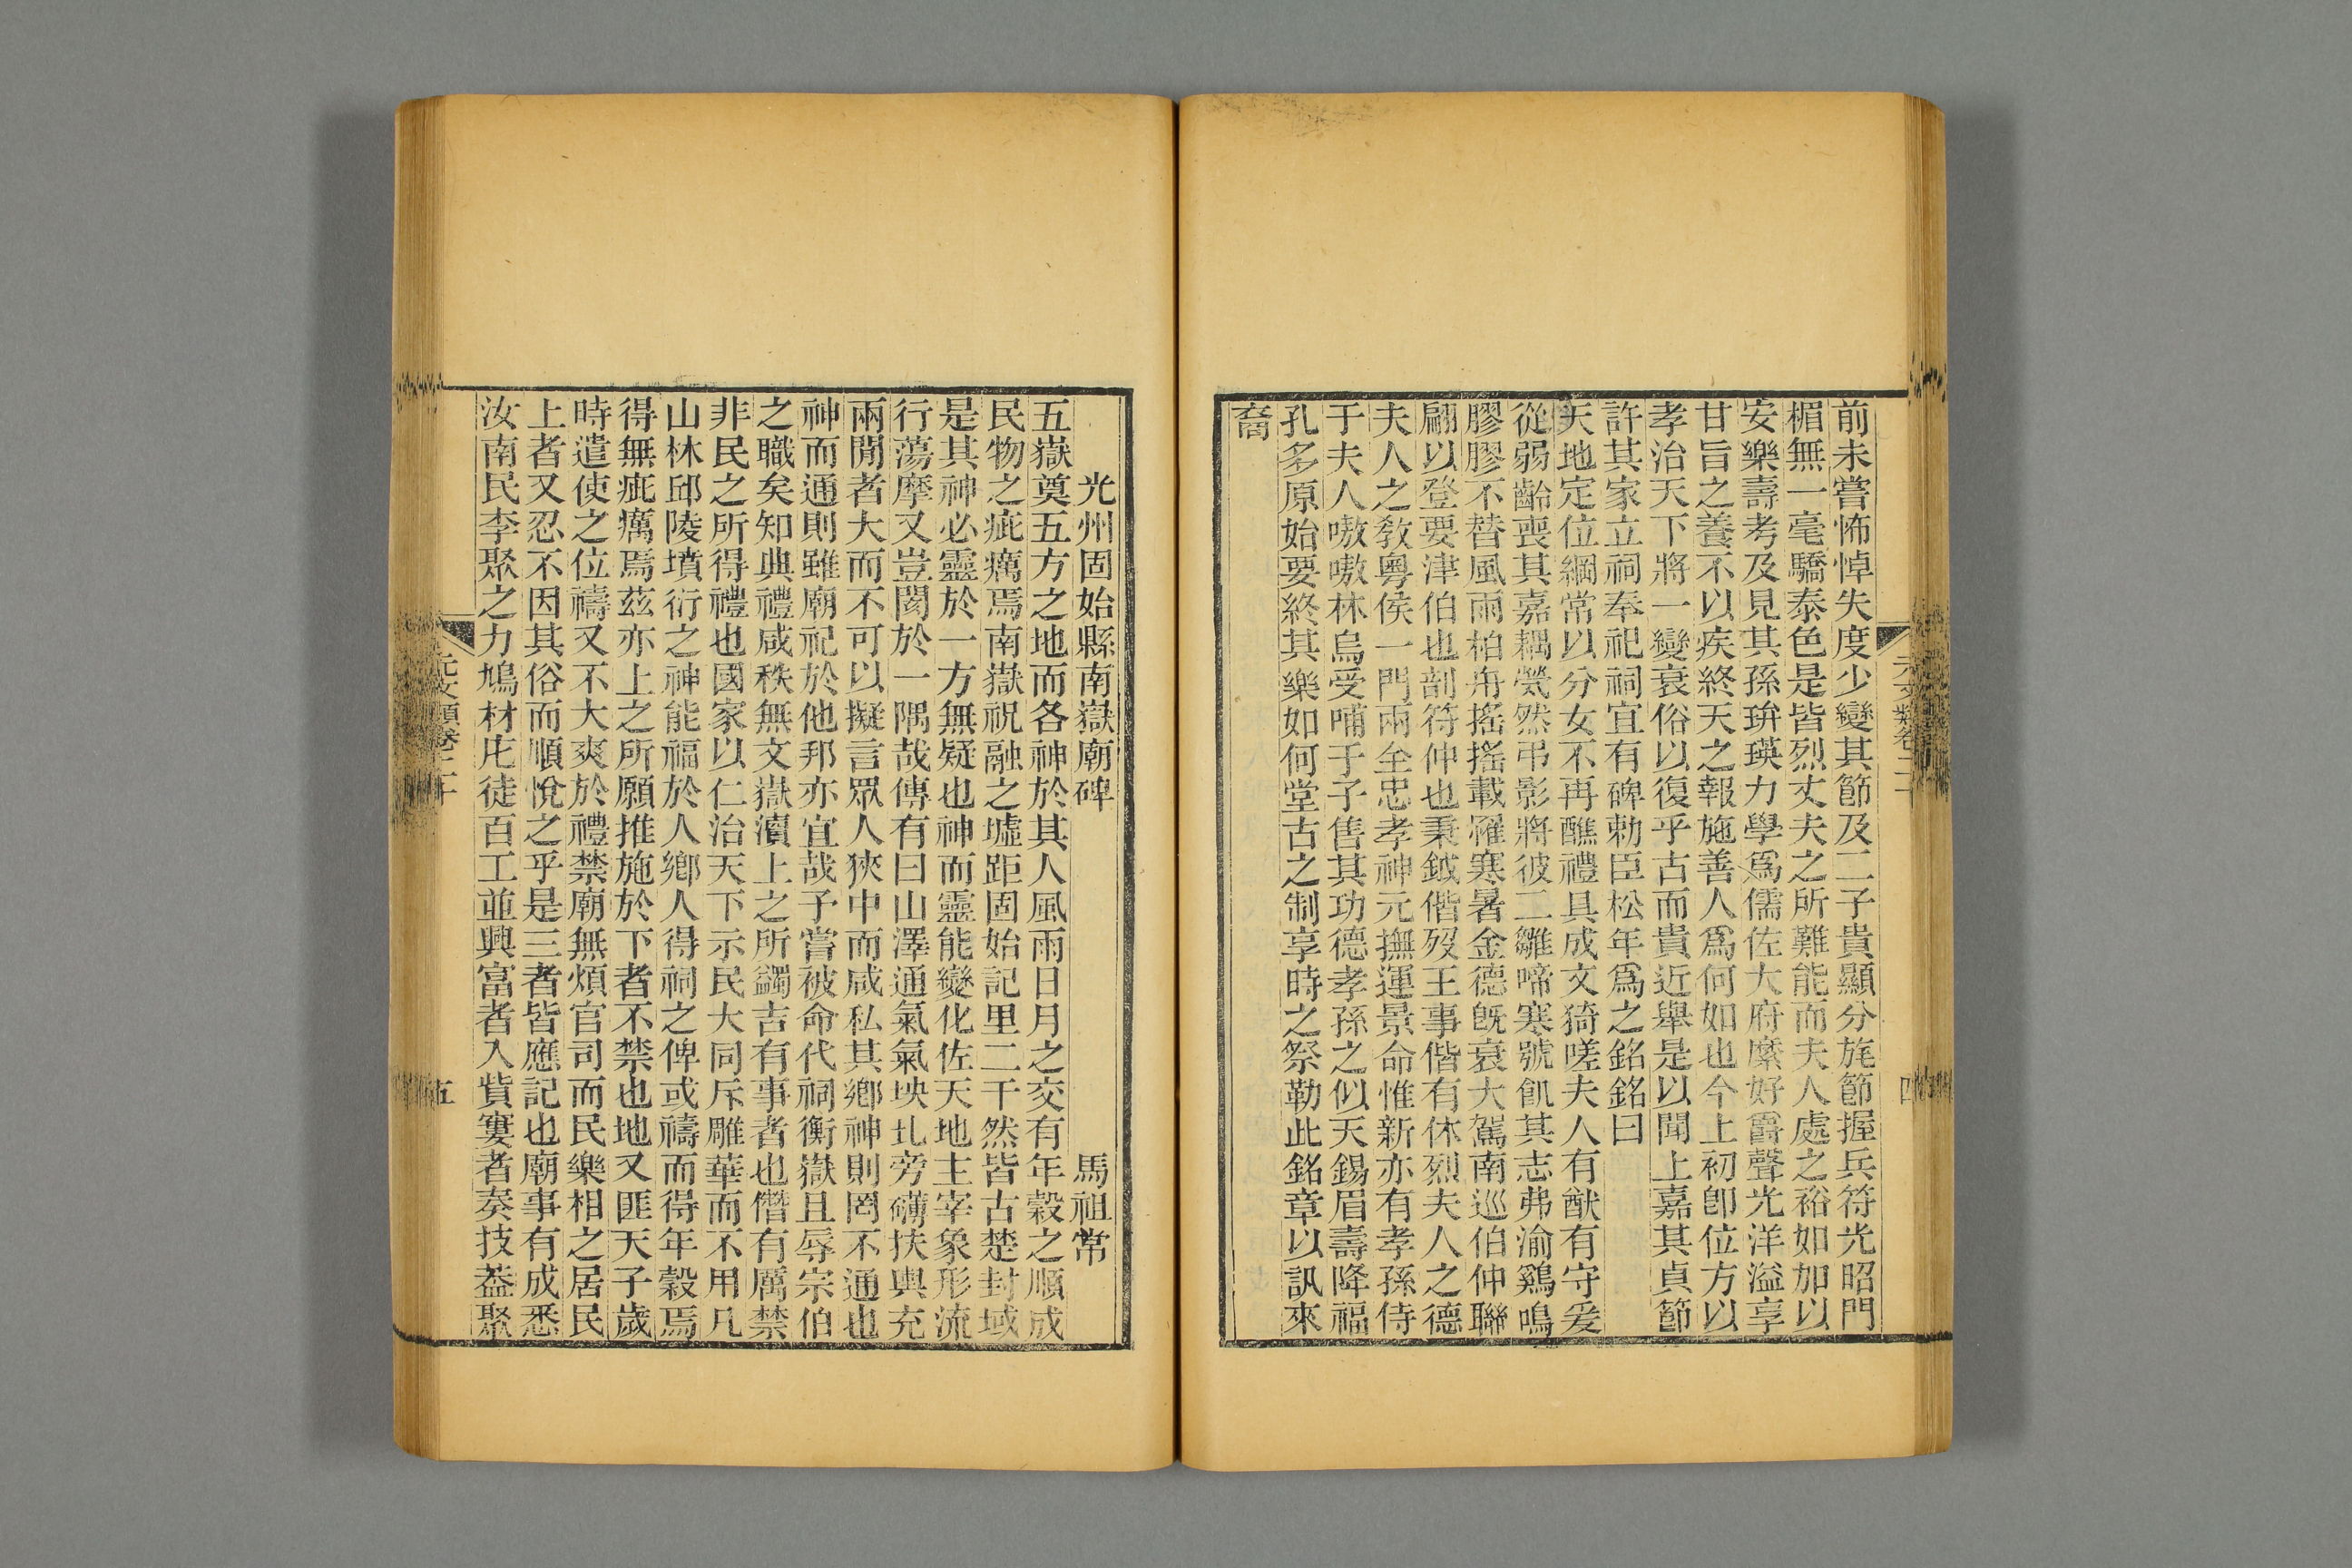 前未嘗怖悼失度少變其節及二子貴顯分旄節握兵符光昭門
楣無一毫驕泰色是皆烈丈夫之所難能而夫人處之裕如加以
安樂壽考及見其孫琲瑛力學爲儒佐大府縻好爵聲光洋溢享
甘旨之養不以疾終天之報施善人爲何如也今上初卽位方以
孝治天下將一變衰俗以復乎古而貴近舉是以聞上嘉其貞節
許其家立祠奉祀祠宜有碑勅臣松年爲之銘銘曰
天地定位綱常以分女不再醮禮具成文猗嗟夫人有猷有守爰
從弱齡喪其嘉耦煢然弔影將彼二雛啼寒號飢其志弗渝鷄鳴
膠膠不替風雨柏舟搖搖載罹寒暑金德旣衰大駕南巡伯仲聯
翩以登要津伯也剖符仲也秉鉞偕歿王事偕有休烈夫人之德
夫人之敎粤侯一門兩全忠孝神元撫運景命惟新亦有孝孫侍
于夫人嗷嗷林烏受哺于子售其功德孝孫之似天錫眉壽降福
孔多原始要終其樂如何堂古之制享時之祭勒此銘章以訊來
裔
四
光州固始縣南嶽廟碑 馬祖常
五嶽奠五方之地而各神於其人風雨日月之交有年穀之順成
民物之疵癘焉南嶽祝融之墟距固始記里二千然皆古楚封域
是其神必靈於一方無疑也神而靈能變化佐天地主宰象形流
行蕩摩又豈閡於一隅哉傳有曰山澤通氣氣坱圠旁礴扶輿充
兩閒者大而不可以擬言眾人狹中而咸私其鄉神則罔不通也
神而通則雖廟祀於他邦亦宜哉予嘗被命代祠衡嶽且辱宗伯
之職矣知典禮咸秩無文嶽瀆上之所蠲吉有事者也僭有厲禁
非民之所得禮也國家以仁治天下示民大同斥雕華而不用凡
山林邱陵墳衍之神能福於人鄉人得祠之俾或禱而得年穀焉
得無疵癘焉茲亦上之所願推施於下者不禁也地又匪天子歲
時遣使之位禱又不大爽於禮禁廟無煩官司而民樂相之居民
上者又忍不因其俗而順悅之乎是三者皆應記也廟事有成悉
汝南民李聚之力鳩材庀徒百工並興富者入貲窶者奏技葢聚
元文類卷二十
五